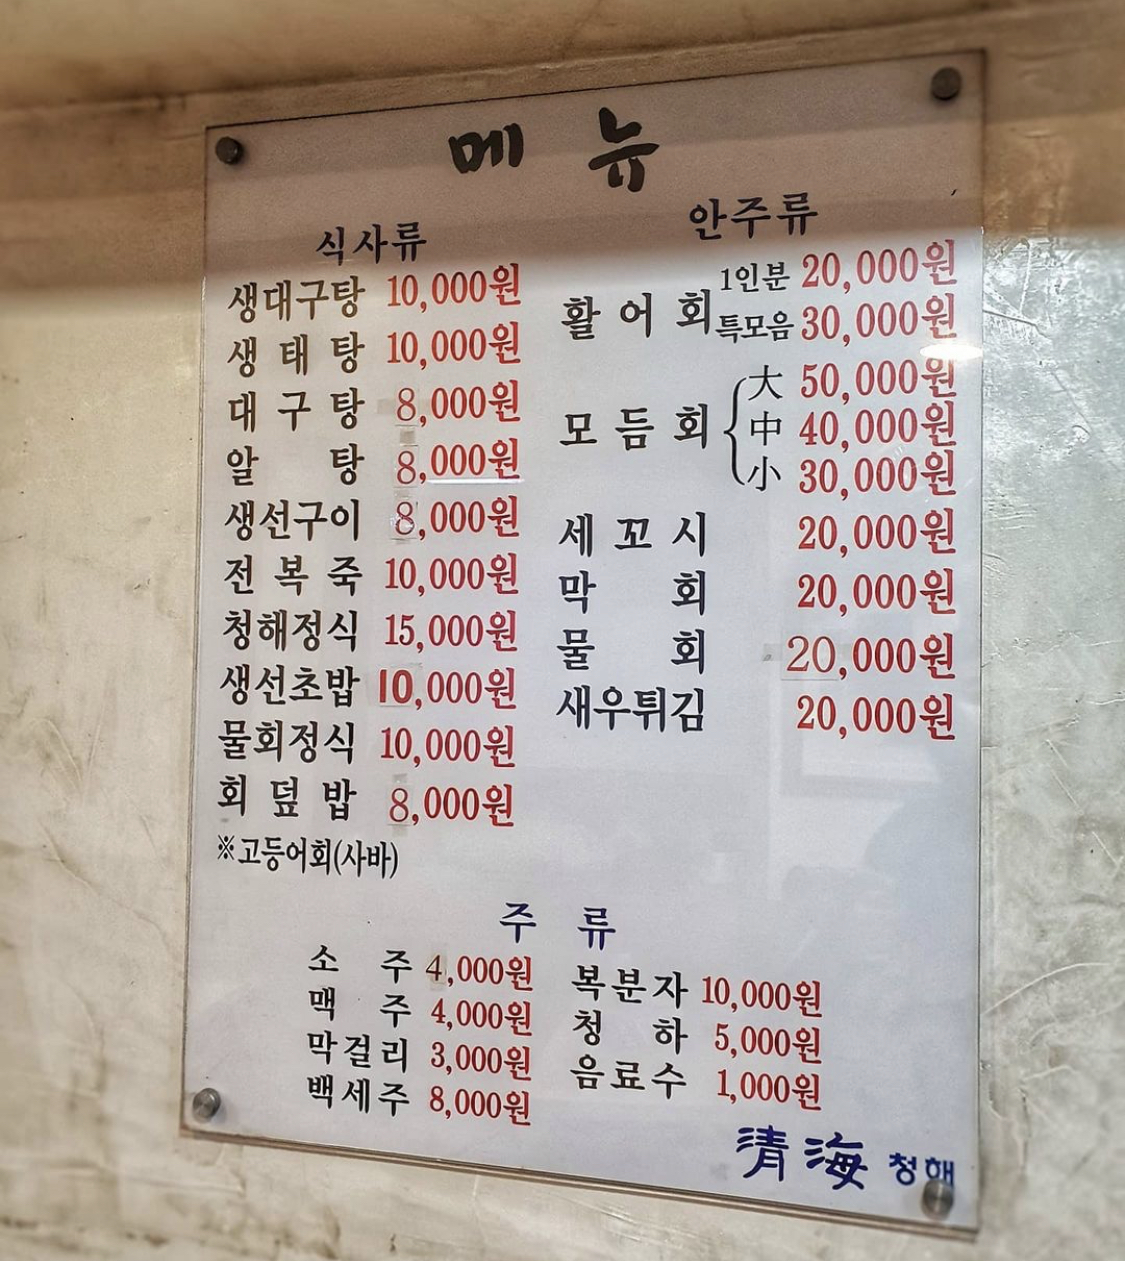 메 뉴
식사류
생대구탕 10,000원
생 태 탕 10,000원
대 구 탕 8,000원
알 탕 8,000원
생선구이 8,000원
전 복 죽 10,000원
청해정식 15,000원
생선초밥 10,000원
물회정식 10,000원
회 덮 밥 8,000원
※고등어회(사바)
안주류
활 어 회 1인분 20,000원
특모음 30,000원
모 듬 회 大 50,000원
中 40,000원
小 30,000원
세 꼬 시 20,000원
막 회 20,000원
물 회 20,000원
새우튀김 20,000원
주 류
소 주 4,000원
맥 주 4,000원
막걸리 3,000원
백세주 8,000원
복분자 10,000원
청 하 5,000원
음료수 1,000원
清海 청해